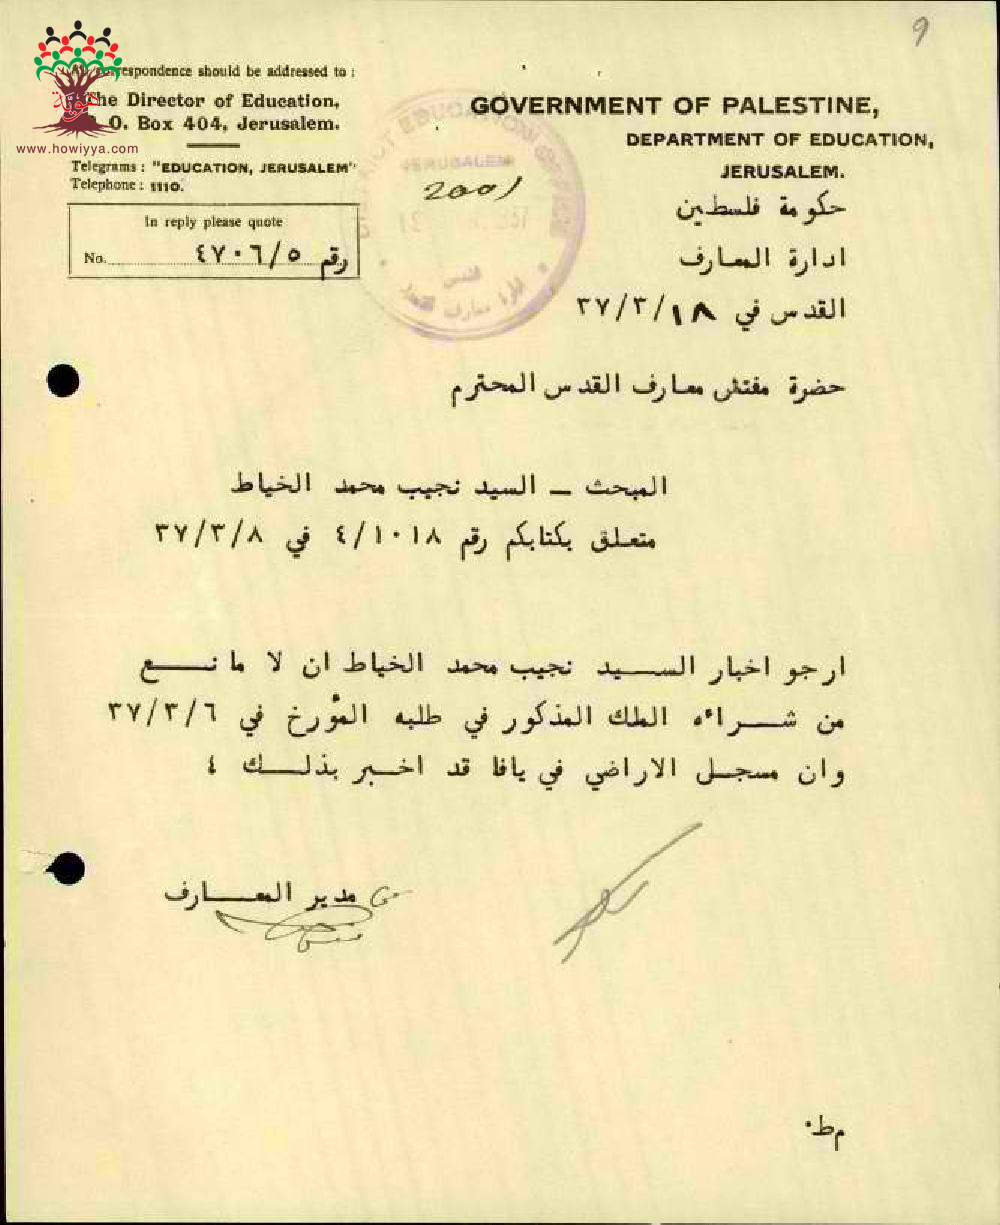 9
All correspondence should be addressed to :
The Director of Education,
P. O. Box 404, Jerusalem.
www.howiyya.com
Telegrams : "EDUCATION, JERUSALEM"
Telephone : 1110.
In reply please quote
No. رقم ٤٧٠٦/٥
DISTRICT EDUCATION OFFICE
JERUSALEM
2001
GOVERNMENT OF PALESTINE,
DEPARTMENT OF EDUCATION,
JERUSALEM.
حكومة فلسطين
ادارة المعارف
القدس في ٣٧/٣/١٨
حضرة مفتش معارف القدس المحترم
المبحث ــ السيد نجيب محمد الخياط
متعلق بكتابكم رقم ٤/١٠١٨ في ٣٧/٣/٨
ارجو اخبار الســـيد نجيب محمد الخياط ان لا مانـــــع
من شـــراءه الملك المذكور في طلبه المؤرخ في ٣٧/٣/٦
وان مسجـل الاراضي في يافا قد اخـــبر بذلــك ٤
عن مدير المعــــارف
م ط٠